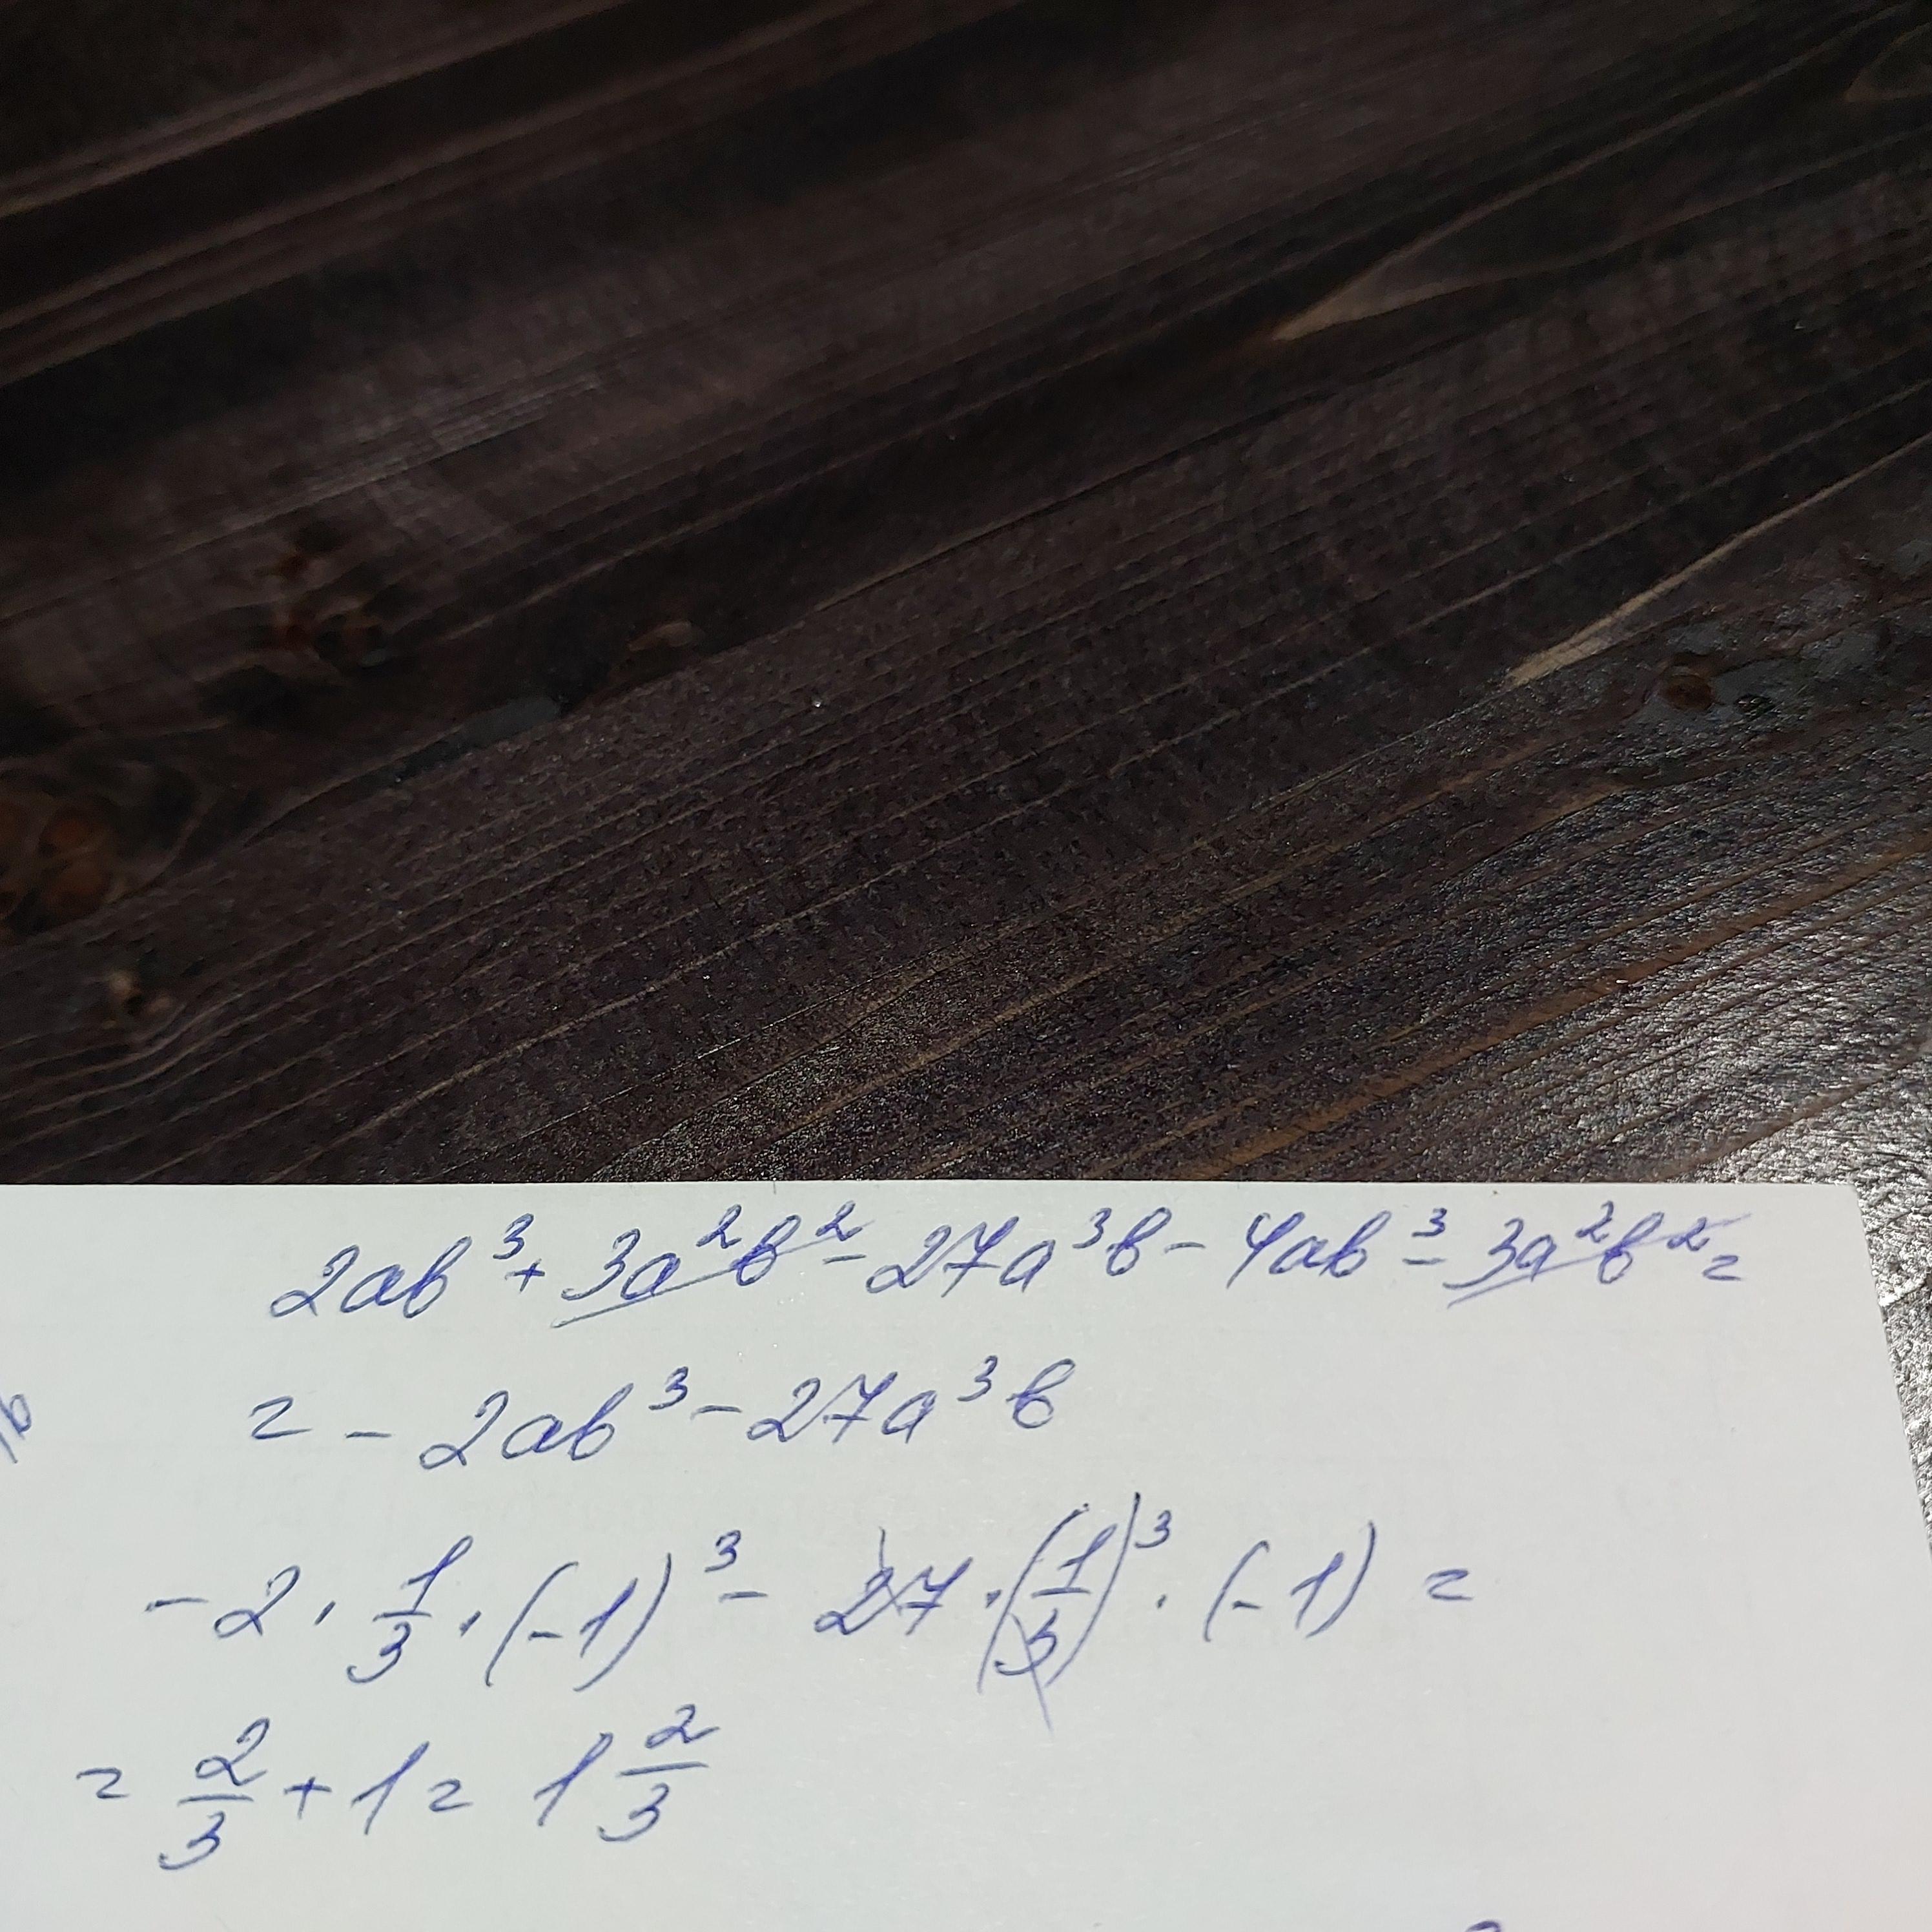 2ab³ + 3a²b² - 27a³b - 4ab³ - 3a²b² =
= - 2ab³ - 27a³b
-2 · 1/3 · (-1)³ - 27 · (1/3)³ · (-1) =
= 2/3 + 1 = 1 2/3